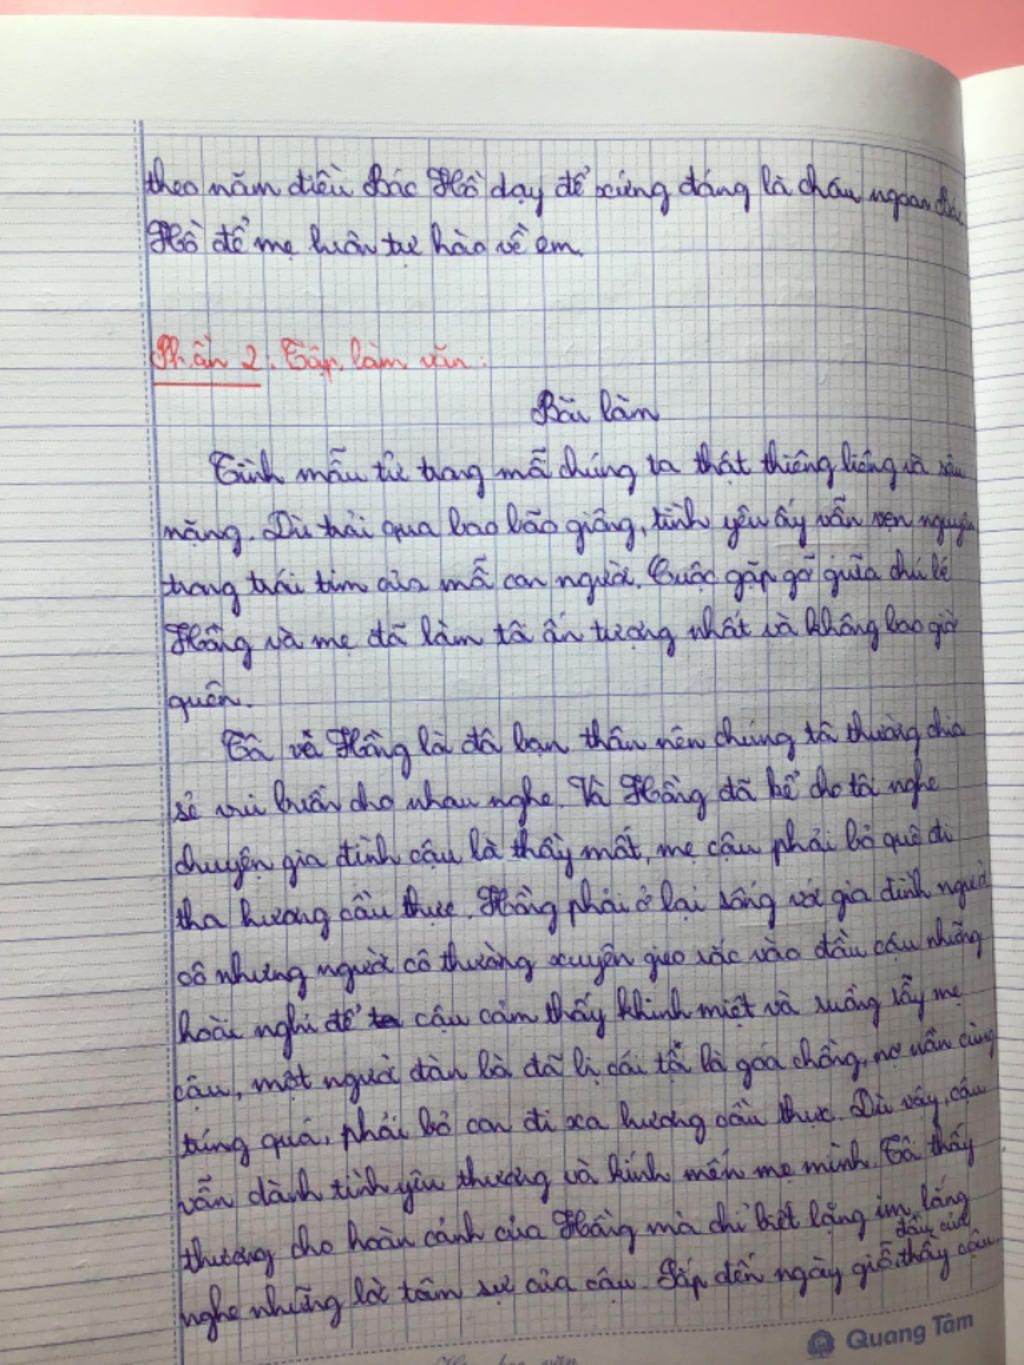 theo năm điều Bác Hồ dạy để xứng đáng là cháu ngoan Bác
Hồ để mẹ luôn tự hào về em.
Phần 2: Tập làm văn:
Bài làm
Tình mẫu tử trong mỗi chúng ta thật thiêng liêng và sâu
nặng. Dù trải qua bao bão giông, tình yêu ấy vẫn vẹn nguyên
trong trái tim của mỗi con người. Cuộc gặp gỡ giữa chú bé
Hồng và mẹ đã làm tôi ấn tượng nhất và không bao giờ
quên.
Tôi và Hồng là đôi bạn thân nên chúng tôi thường chia
sẻ vui buồn cho nhau nghe. Và Hồng đã kể cho tôi nghe
chuyện gia đình cậu là thầy mất, mẹ cậu phải bỏ quê đi
tha hương cầu thực. Hồng phải ở lại sống với gia đình người
cô nhưng người cô thường xuyên gieo rắc vào đầu cậu những
hoài nghi để cậu cảm thấy khinh miệt và ruồng rẫy mẹ
cậu, một người đàn bà đã bị cái tội là goá chồng, nợ nần cùng
túng quá, phải bỏ con đi xa hương cầu thực. Dù vậy, cậu
vẫn dành tình yêu thương và kính mến mẹ mình. Tôi thấy
thương cho hoàn cảnh của Hồng mà chỉ biết lặng im lắng
nghe những lời tâm sự của cậu. Sắp đến ngày giỗ đầu của thầy cậu
Quang Tâm